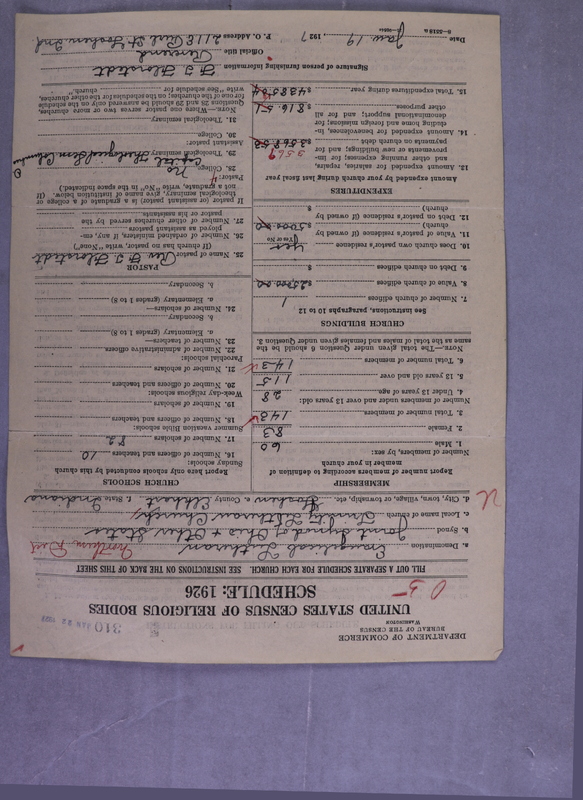 DEPARTMENT OF COMMERCE
BUREAU OF THE CENSUS
WASHINGTON
310
UNITED STATES CENSUS OF RELIGIOUS BODIES
SCHEDULE: 1926
FILL OUT A SEPARATE SCHEDULE FOR EACH CHURCH. SEE INSTRUCTIONS ON THE BACK OF THIS SHEET
a. Denomination Evangelical Lutheran
b. Synod Joint Synod of Ohio & Other States
Northern Dist
c. Local name of church Trinity Lutheran Church
d. City, town, village, or township, etc. Goshen e. County Elkhart f. State Indiana
MEMBERSHIP
Report number of members according to definition of
member in your church
Number of members, by sex:
1. Male 60
2. Female 83
3. Total number of members 143
Number of members under and over 13 years old:
4. Under 13 years of age 28
5. 13 years old and over 115
6. Total number of members 143
NOTE—The total given under Question 6 should be the
same as the total of males and females given under Question 3.
CHURCH BUILDINGS
See instructions, paragraphs 10 to 12
7. Number of church edifices 1
8. Value of church edifices $25000.00
9. Debt on church edifices $
10. Does church own pastor's residence Yes
(Yes or No)
11. Value of pastor's residence (if owned by
church) $5000.00
12. Debt on pastor's residence (if owned by
church) $
EXPENDITURES
Amount expended by your church during last fiscal year
13. Amount expended for salaries, repairs,
and other running expenses; for im-
provements or new building; and for
payments on church debt 3569
14. Amount expended for benevolences, in-
cluding home and foreign missions; for
denominational support; and for all
other purposes $816.51
15. Total expenditures during year $4385.04
CHURCH SCHOOLS
Report here only schools conducted by this church
Sunday schools:
16. Number of officers and teachers 10
17. Number of scholars 82
Summer vacation Bible schools:
18. Number of officers and teachers
19. Number of scholars
Week-day religious schools:
20. Number of officers and teachers
21. Number of scholars
Parochial schools:
22. Number of administrative officers
23. Number of teachers—
a. Elementary (grades 1 to 8)
b. Secondary
24. Number of scholars—
a. Elementary (grades 1 to 8)
b. Secondary
PASTOR
25. Name of pastor Rev. F. J. Florstedt
(If church has no pastor, write "None")
26. Number of ordained ministers, if any, em-
ployed as assistants to pastor
27. Number of other churches served by the
pastor or his assistants
If pastor (or assistant pastor) is a graduate of a college or
theological seminary, give name of institution below. (If
not a graduate, write "No" in the space indicated.)
Pastor:
28. College No
29. Theological seminary Capital Theological Sem. Columbus O
Assistant pastor:
30. College
31. Theological seminary
NOTE.—Where one pastor serves two or more churches,
Questions 25 and 29 should be answered only on the schedule
for one of the churches; on the schedules for the other churches,
write "See schedule for church."
Signature of person furnishing information F. J. Florstedt
Official title Reverend
Date Jan 19 1927 P. O. Address 211 E Purl St. Goshen, Ind
8—5518a